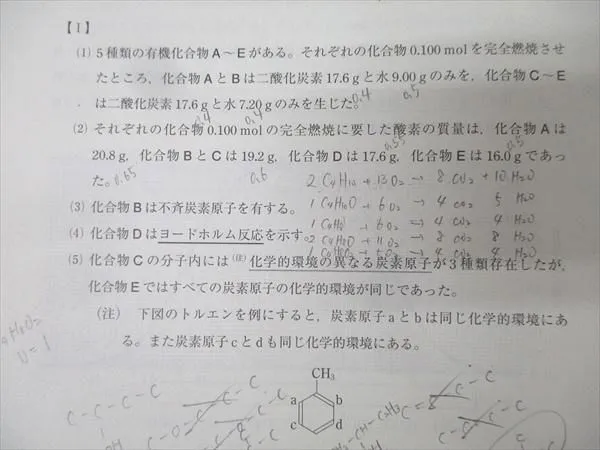 【Ⅰ】
(1) 5種類の有機化合物A～Eがある。それぞれの化合物0.100 molを完全燃焼させ
たところ，化合物AとBは二酸化炭素17.6 gと水9.00 gのみを，化合物C～E
は二酸化炭素17.6 gと水7.20 gのみを生じた。
0.4 0.5
0.4 0.4
(2) それぞれの化合物0.100 molの完全燃焼に要した酸素の質量は，化合物Aは
20.8 g，化合物BとCは19.2 g，化合物Dは17.6 g，化合物Eは16.0 gであっ
0.55 0.5
た。
0.65 0.6
2 C4H10 + 13O2 → 8 CO2 + 10 H2O
(3) 化合物Bは不斉炭素原子を有する。
1 C4H10O + 6O2 → 4 CO2 5 H2O
(4) 化合物Dはヨードホルム反応を示す。
1 + 6O2 → 4 CO2 4 H2O
2 C4H8O + 11O2 → 8 CO2 8 H2O
→ 4 CO2 4 H2O
(5) 化合物Cの分子内には(注)化学的環境の異なる炭素原子が3種類存在したが，
化合物Eではすべての炭素原子の化学的環境が同じであった。
(注) 下図のトルエンを例にすると，炭素原子aとbは同じ化学的環境にあ
る。また炭素原子cとdも同じ化学的環境にある。
U = 1
CH3
a b
c d
C-C-C-C